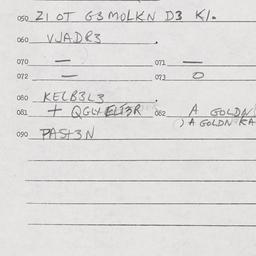 050 ZI OT G3 MOLKN D3 K/.
060 VJADR3 .
070 — 071 —
072 — 073 O
080 KELB3L3 .
081 + QGLY ELT3R 082 A GOLDN
) A GOLDN KA
090 PAST3N